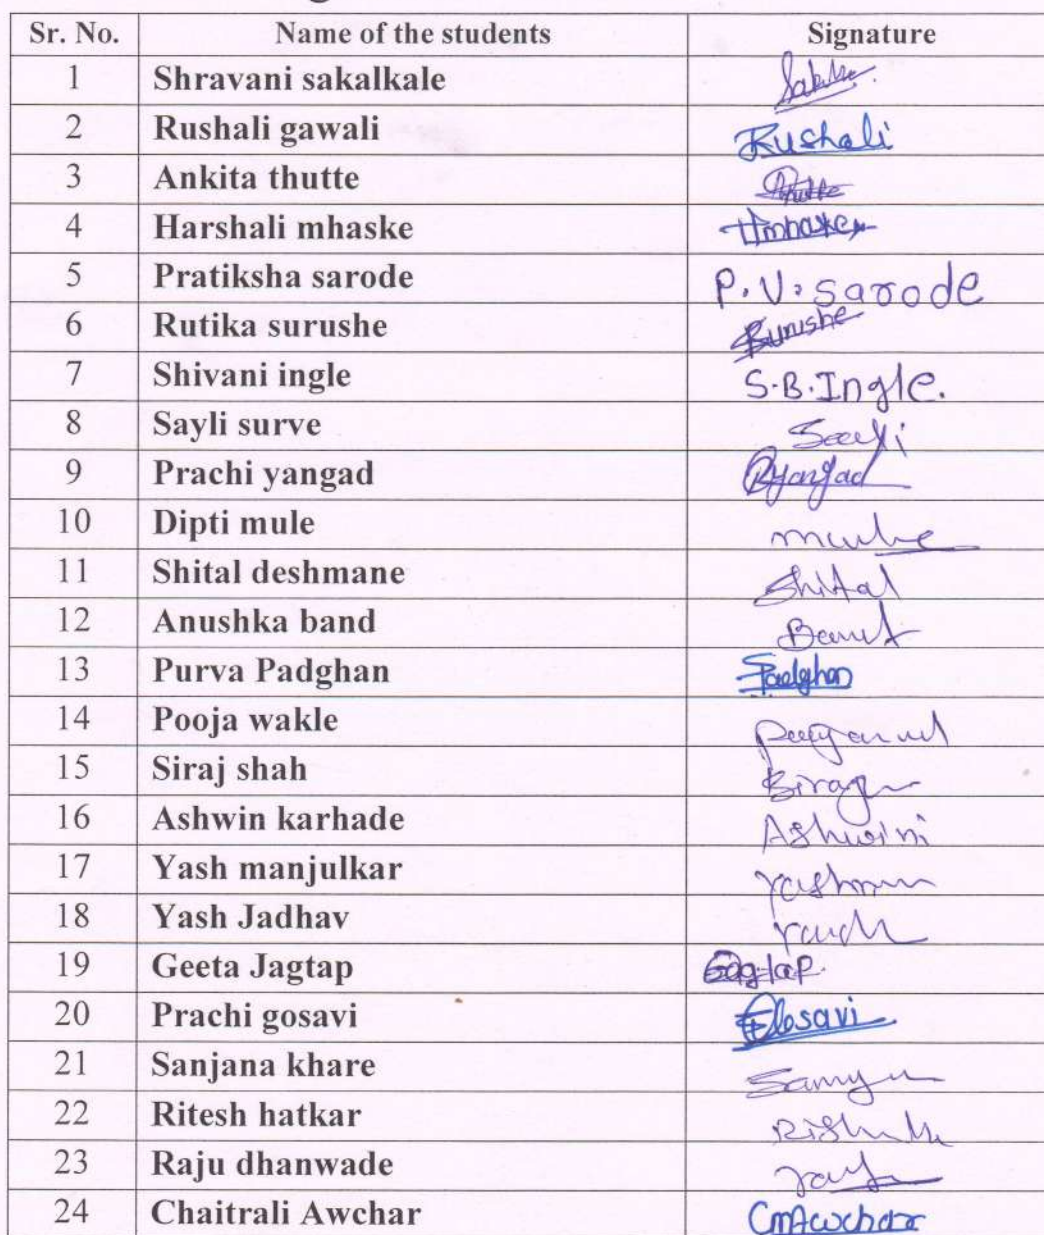 Sr. No. Name of the students Signature
1 Shravani sakalkale
2 Rushali gawali Rushali
3 Ankita thutte Thutte
4 Harshali mhaske Hmhaske
5 Pratiksha sarode P.V.sarode
6 Rutika surushe Surushe
7 Shivani ingle S.B.Ingle.
8 Sayli surve Sayli
9 Prachi yangad Pyangad
10 Dipti mule mule
11 Shital deshmane Shital
12 Anushka band Band
13 Purva Padghan Padghan
14 Pooja wakle
15 Siraj shah Siraj
16 Ashwin karhade Ashwini
17 Yash manjulkar
18 Yash Jadhav
19 Geeta Jagtap
20 Prachi gosavi
21 Sanjana khare
22 Ritesh hatkar
23 Raju dhanwade
24 Chaitrali Awchar CmAwchar